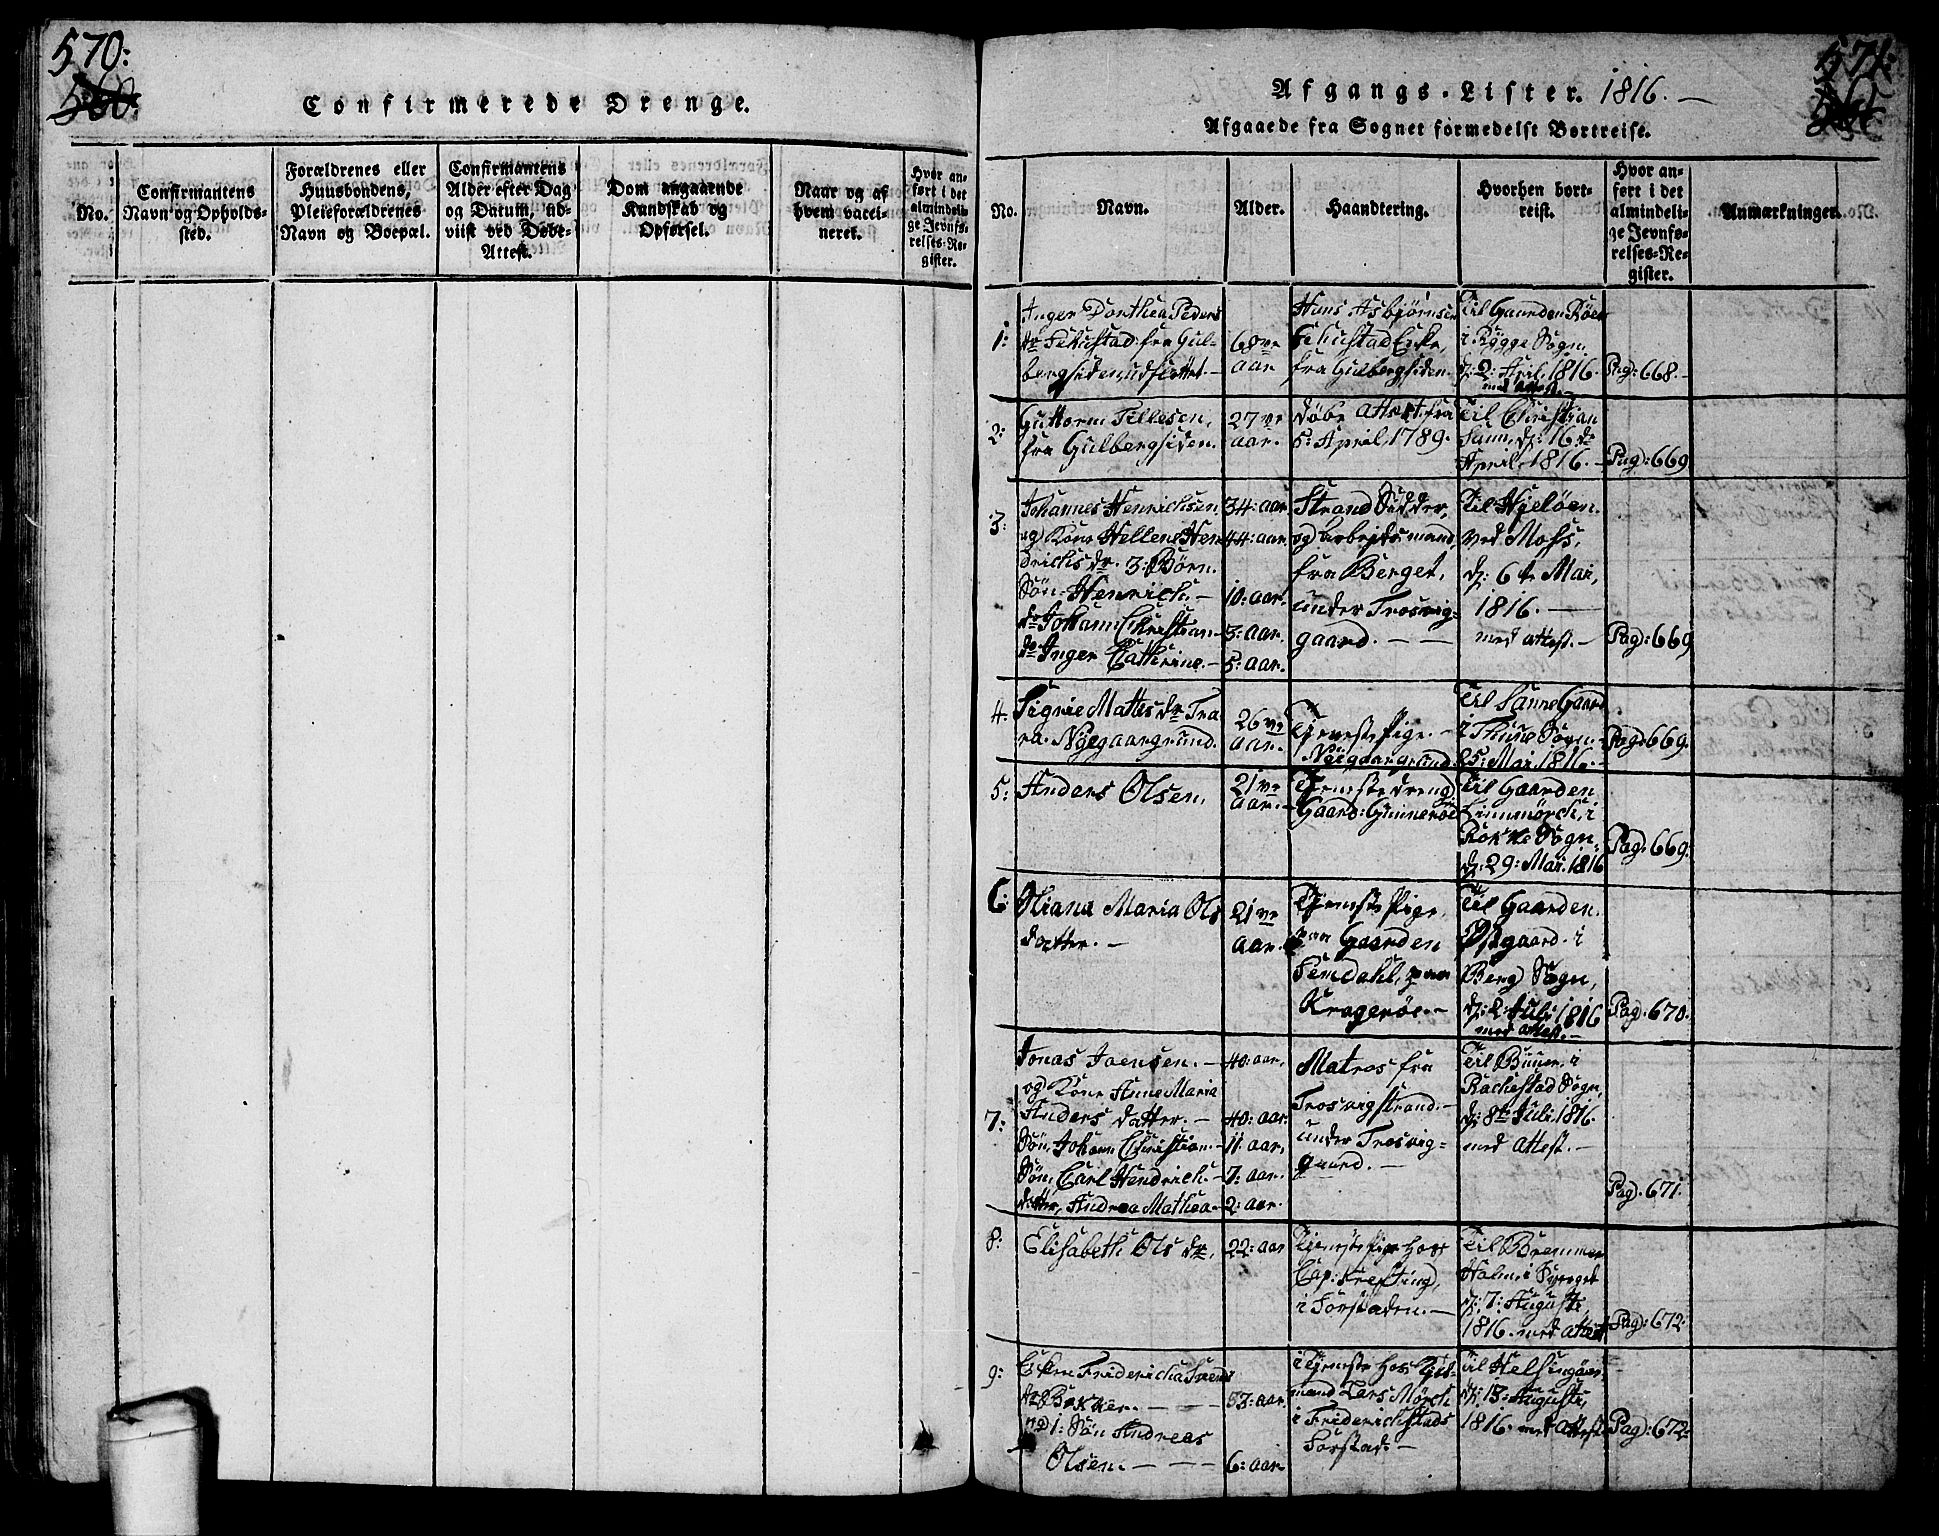 570:
560.
Confirmerede Drenge.
No.
Confirmantens
Navn og Opholds-
sted.
Forældrenes eller
Huusbondens,
Pleieforældrenes
Navn og Boepæl.
Confirmantens
Alder efter Dag
og Datum, ud-
viist ved Døbe-
Attest.
Dom angaaende
Kundskab og
Opførsel.
Naar og af
hvem vacci-
neret.
Hvor an-
ført i det
almindeli-
ge Jevnfø-
relses-Re-
gister.
571:
561
Afgangs-Lister. 1816.
Afgaaede fra Sognet formedelst Bortreise.
No.
Navn.
Alder.
Haandtering.
Hvorhen bort-
reist.
Hvor an-
ført i det
almindeli-
ge Jevnfø-
relses-Re-
gister.
Anmærkninger.
1:
Inger Dorthea Peders
dr fra Gul-
bergsiden udflöttet.
68ve
aar
Hans Asbjörnsen
Enke,
fra Gulbergsiden.
Til Gaarden Röer
i Rygge Sogn,
d: 2: April, 1816.
med Attest.
Pag: 668.
2:
Guttorm Tellesen,
fra Gulbergsiden.
27ve
aar.
døbe attest fra
5: April, 1789.
Til Christian
Sann, d: 16de
April. 1816.
Pag: 669
3:
Johannes Henrichsen
og Kone Hellene Hen
drichs dr. 3: Børn.
Søn. Henrich.
do Johann Christian
do Inger Cathrine.
34: aar
44: aar.
10: aar.
3: aar.
5: aar.
Strand Sidder,
og Arbeids mand,
fra Berget,
under Trosvig-
gaard.
Til Hjeløen.
ved Moss,
d: 6te Mai,
1816.
med attest.
Pag: 669
4:
Sigrie Mattis dr
Nygaargrund.
26ve
aar.
Tjeneste Pige.
Nygaargrund
Til Sanne Gaard
i Thune Sogn.
25: Mai. 1816.
Pag: 669.
5:
Anders Olsen,
21ve
aar.
Tjeneste dreng
Gaard: Gunnerød
Til Gaarden
i
Rokke Sogn.
d: 29: Mai. 1816
Pag: 669.
6:
Oliana Maria Ols
datter.
21ve
aar.
Tjeneste Pige,
paa Gaarden
paa
Kragerøe.
Til Gaarden.
Øsgaard. i
Berg Sogn,
d: 2 Juli 1816
med attest.
Pag: 670.
7:
Jonas Joensen.
og Kone Anne Maria
Anders datter.
Søn Johann Christian
Søn, Carl Hendrich.
datter, Andrea Mathea
40: aar,
40: aar.
11 aar,
7: aar.
2: aar.
Matros fra
Trosvigstrand.
under Trosvig-
gaard.
Til i
Rachestad Sogn,
d: 8te Juli. 1816.
med attest.
Pag. 671.
8:
Elisabeth Ols dr.
22: aar
Tjeneste Pige hos
Cap: Krefting,
i Forstaden.
Til Bremmer
Holm, i
d: 7: Augusti,
1816. med attest
Pag: 672:
9:
Ellen Fridericha
dr Bekker.
og 1: Søn Andreas
Olsen.
53: aar.
6: aar.
i Tjeneste hos
mand Lars Mörch
i Friderichstads
Forstad.
Til Helsingøer
d: 13: Augusti,
1816. med attest
Pag: 672: